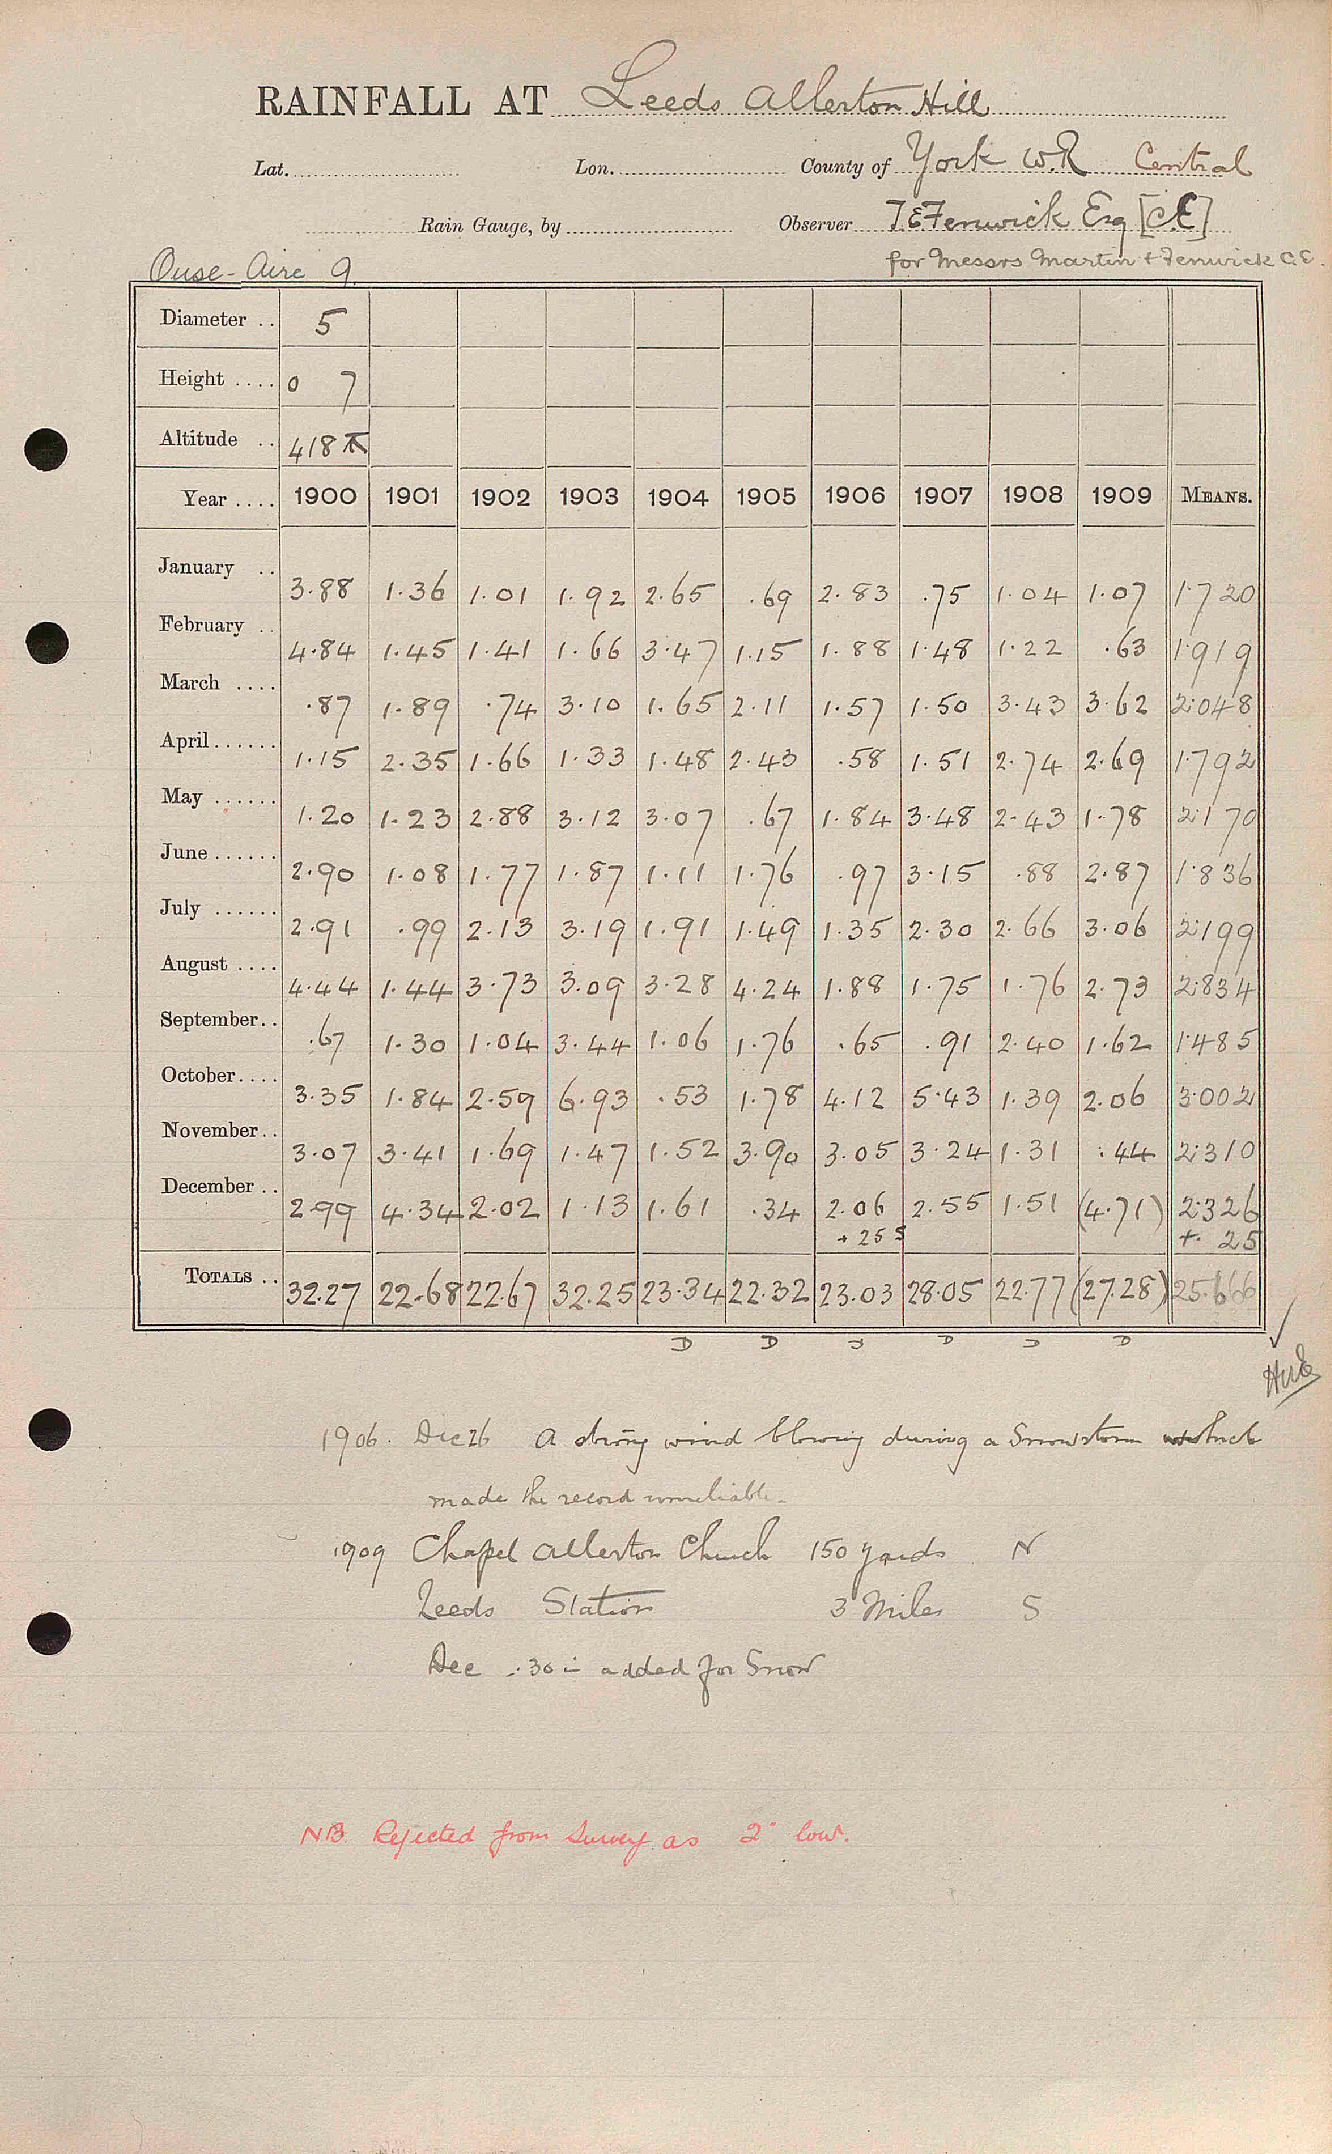 RAINFALL AT Leeds Allerton Hill
Lat. Lon. County of York W.R Central
Rain Gauge, by Observer T E Fenwick Esq [C.E]
Ouse-Aire 9 for Messrs Martin & Fenwick C.E.
Diameter .. 5
Height .... 0 7
Altitude .. 418
Year .... 1900 1901 1902 1903 1904 1905 1906 1907 1908 1909 MEANS.
January .. 3.88 1.36 1.01 1.92 2.65 .69 2.83 .75 1.04 1.07 1.720
February .. 4.84 1.45 1.41 1.66 3.47 1.15 1.88 1.48 1.22 .63 1.919
March .... .87 1.89 .74 3.10 1.65 2.11 1.57 1.50 3.43 3.62 2.048
April ...... 1.15 2.35 1.66 1.33 1.48 2.43 .58 1.51 2.74 2.69 1.792
May ...... 1.20 1.23 2.88 3.12 3.07 .67 1.84 3.48 2.43 1.78 2.170
June ...... 2.90 1.08 1.77 1.87 1.11 1.76 .97 3.15 .88 2.87 1.836
July ...... 2.91 .99 2.13 3.19 1.91 1.49 1.35 2.30 2.66 3.06 2.199
August .... 4.44 1.44 3.73 3.09 3.28 4.24 1.88 1.75 1.76 2.73 2.834
September.. .67 1.30 1.04 3.44 1.06 1.76 .65 .91 2.40 1.62 1.485
October.... 3.35 1.84 2.59 6.93 .53 1.78 4.12 5.43 1.39 2.06 3.002
November.. 3.07 3.41 1.69 1.47 1.52 3.90 3.05 3.24 1.31 .44 2.310
December .. 2.99 4.34 2.02 1.13 1.61 .34 2.06 2.55 1.51 (4.71) 2.326
+ 25 S +. 25
TOTALS .. 32.27 22.68 22.67 32.25 23.34 22.32 23.03 28.05 22.77 (27.28) 25.666
D D D D D D
1906 Dec 26 A strong wind blowing during a Snowstorm which
made the record unreliable.
1909 Chapel Allerton Church 150 yards N
Leeds Station 3 Miles S
Dec .30 in added for Snow
NB. Rejected from Survey as 2" low.